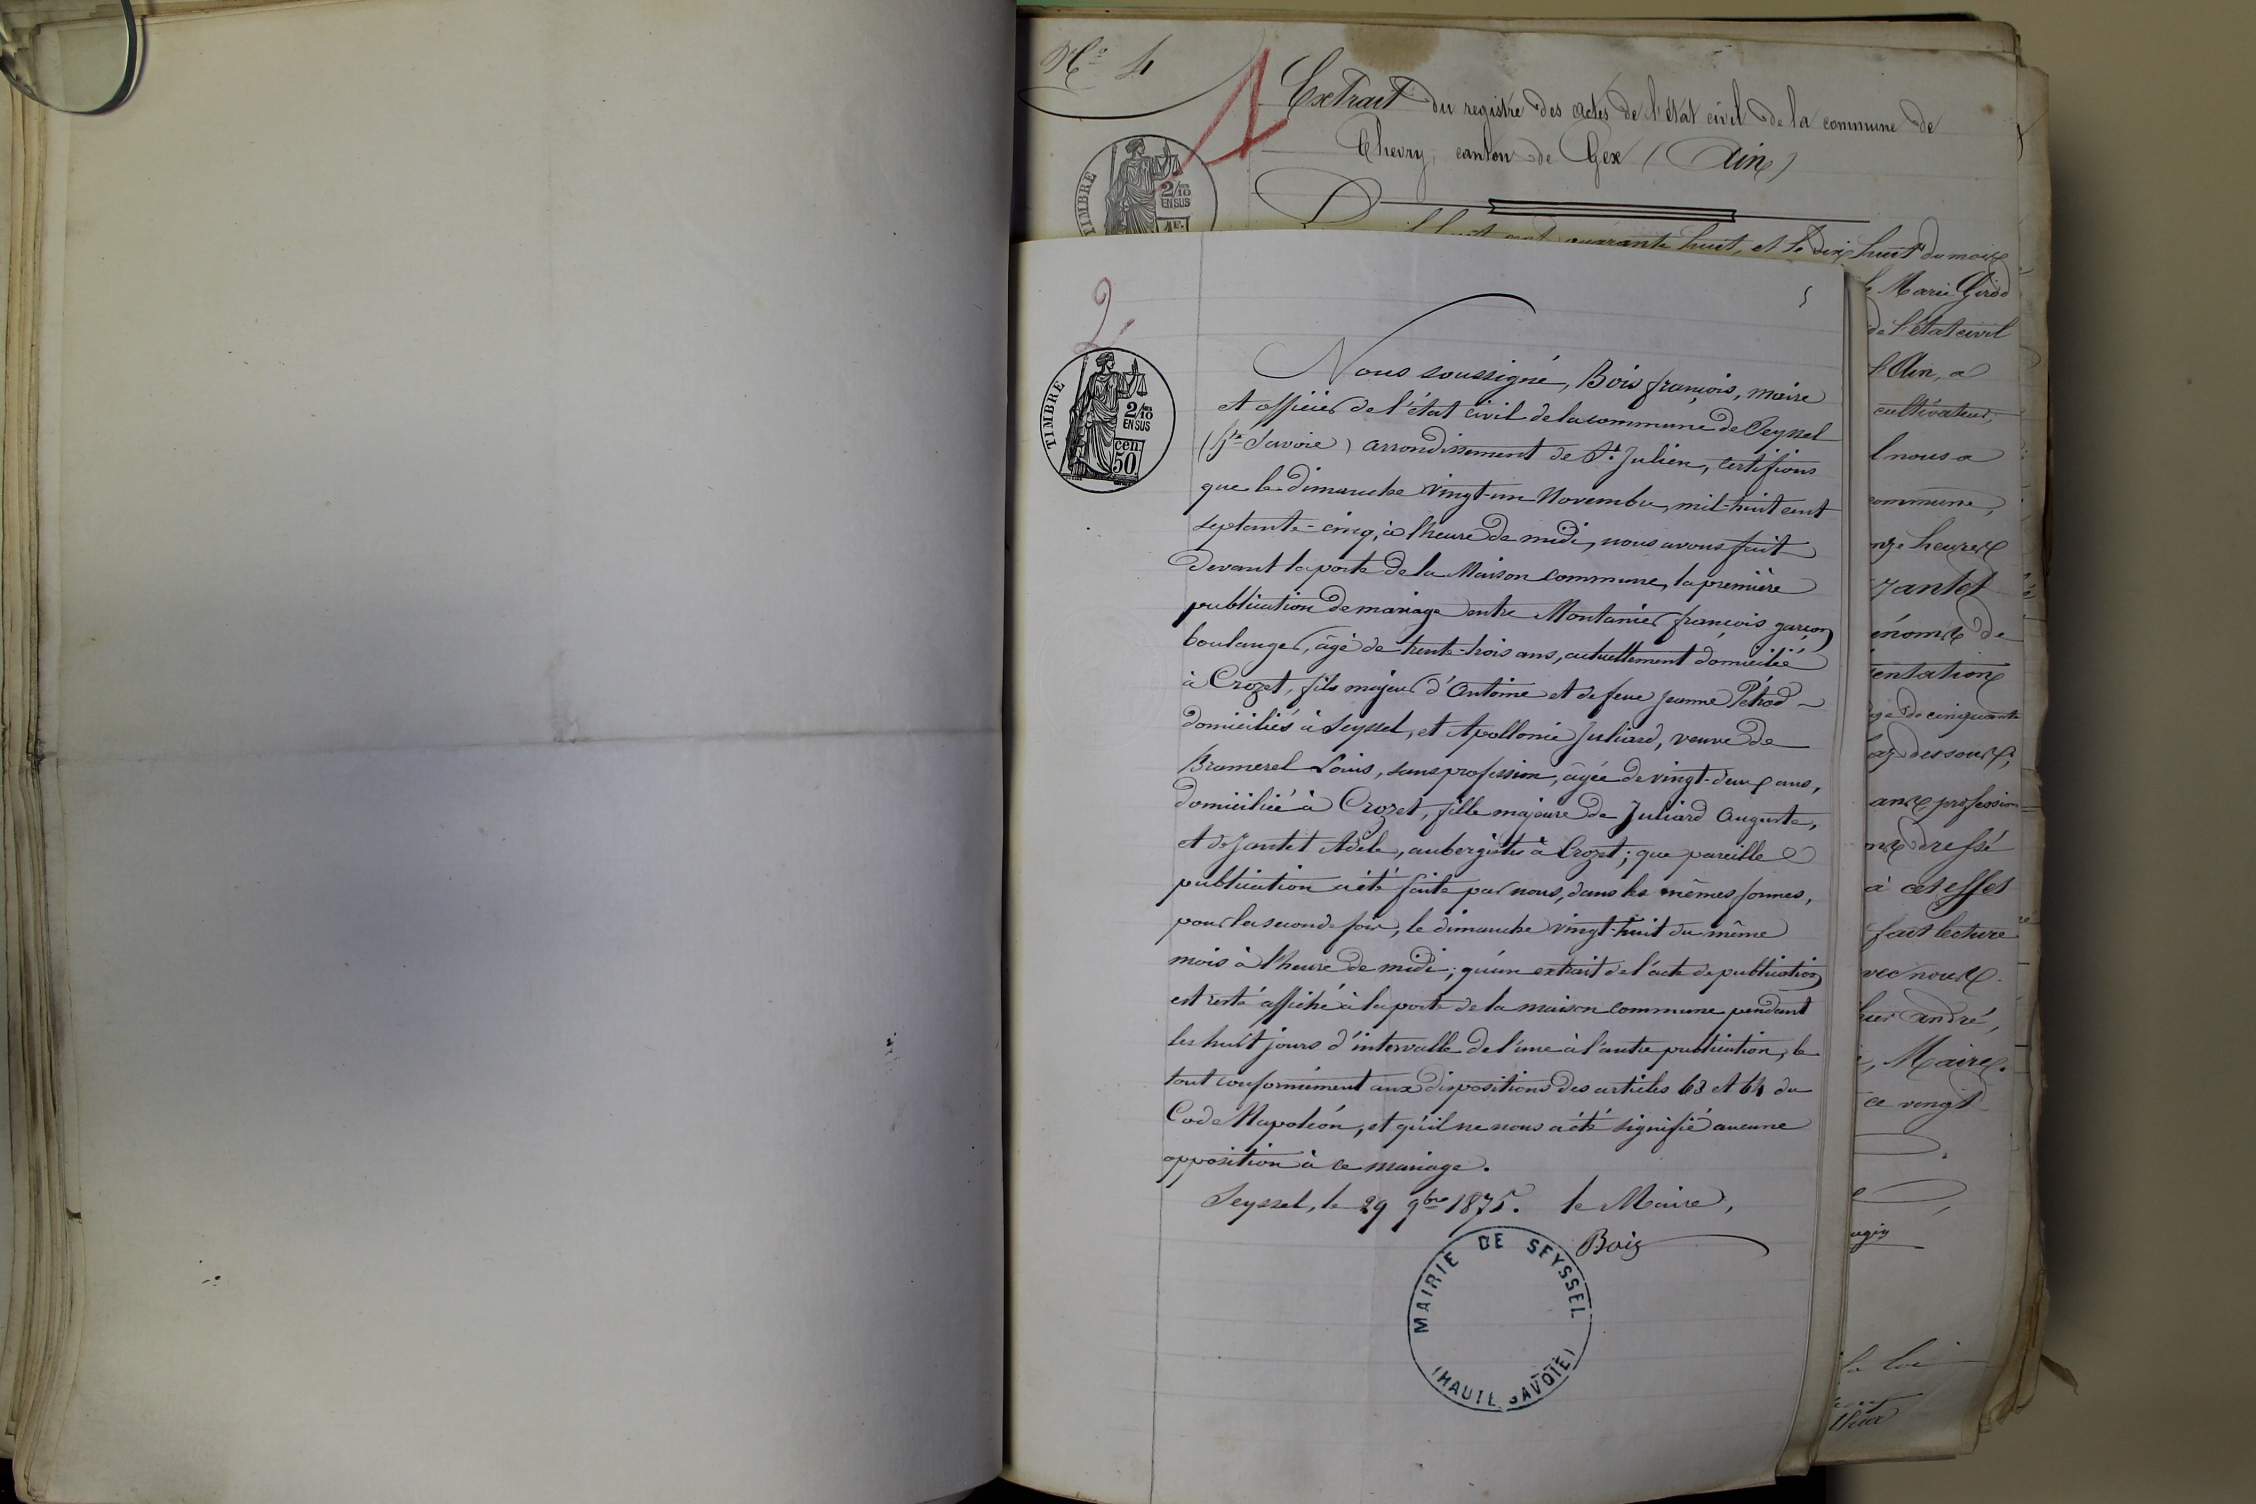 N° 4
1
Extrait du registre des actes de l'état civil de la commune de
Chevry, canton de Gex (Ain)
TIMBRE
2/10
EN SUS
quarante huit, et le dix huit du mois
Marie Girod
de l'état civil
l'Ain, a
cultivateur,
l nous a
commune,
heures
de
cinquante
dessous,
profession
dressé
à cet effet
fait lecture
vec nous
andré,
Maire.
ce vingt
la loi
2
TIMBRE
2/10
EN SUS
cen.
50
5
Nous soussigné, Bois françois, maire
et officier de l'état civil de la commune de Seyssel
(hte Savoie) arrondissement de St. Julien, certifions
que le dimanche vingt-un Novembre, mil-huit cent
septante-cinq, à l'heure de midi, nous avons fait
devant la porte de la Maison commune, la première
publication de mariage entre Montanier françois garçon
boulanger, âgé de trente-trois ans, actuellement domicilié
à Crozet, fils majeur d'Antoine et de feue Jeanne Pétrod -
domiciliés à Seyssel, et Apollonie Juliard, veuve de
Bramerel Louis, sans profession, âgée de vingt-deux ans,
domiciliée à Crozet, fille majeure de Juliard Auguste,
et de Jantet Adèle, aubergistes à Crozet; que pareille
publication a été faite par nous, dans les mêmes formes,
pour la seconde fois, le dimanche vingt-huit du même
mois à l'heure de midi; qu'un extrait de l'acte de publication
est resté affiché à la porte de la maison commune pendant
les huit jours d'intervalle de l'une à l'autre publication, le
tout conformément aux dispositions des articles 63 et 64 du
Code Napoléon, et qu'il ne nous a été signifié aucune
opposition à ce mariage.
Seyssel, le 29 9bre 1875. le Maire,
Bois
MAIRIE DE SEYSSEL
(HAUTE SAVOIE)